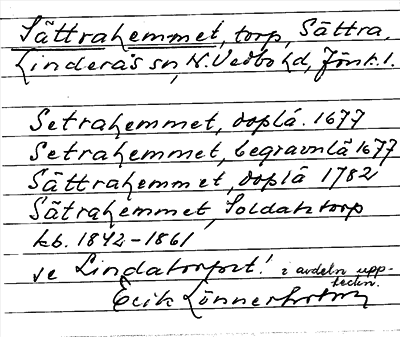 Sättrahemmet, torp, Sättra,
Linderås sn, N. Vedbo hd, Jönk. l.
Setrahemmet, doplä. 1677
Setrahemmet, begravnlä 1677
Sättrahemmet, doplä 1782
Sätrahemmet, Soldattorp
kb. 1842-1861
se Lindatorpet! i avdeln upp-
teckn.
Erik Lönnerholm